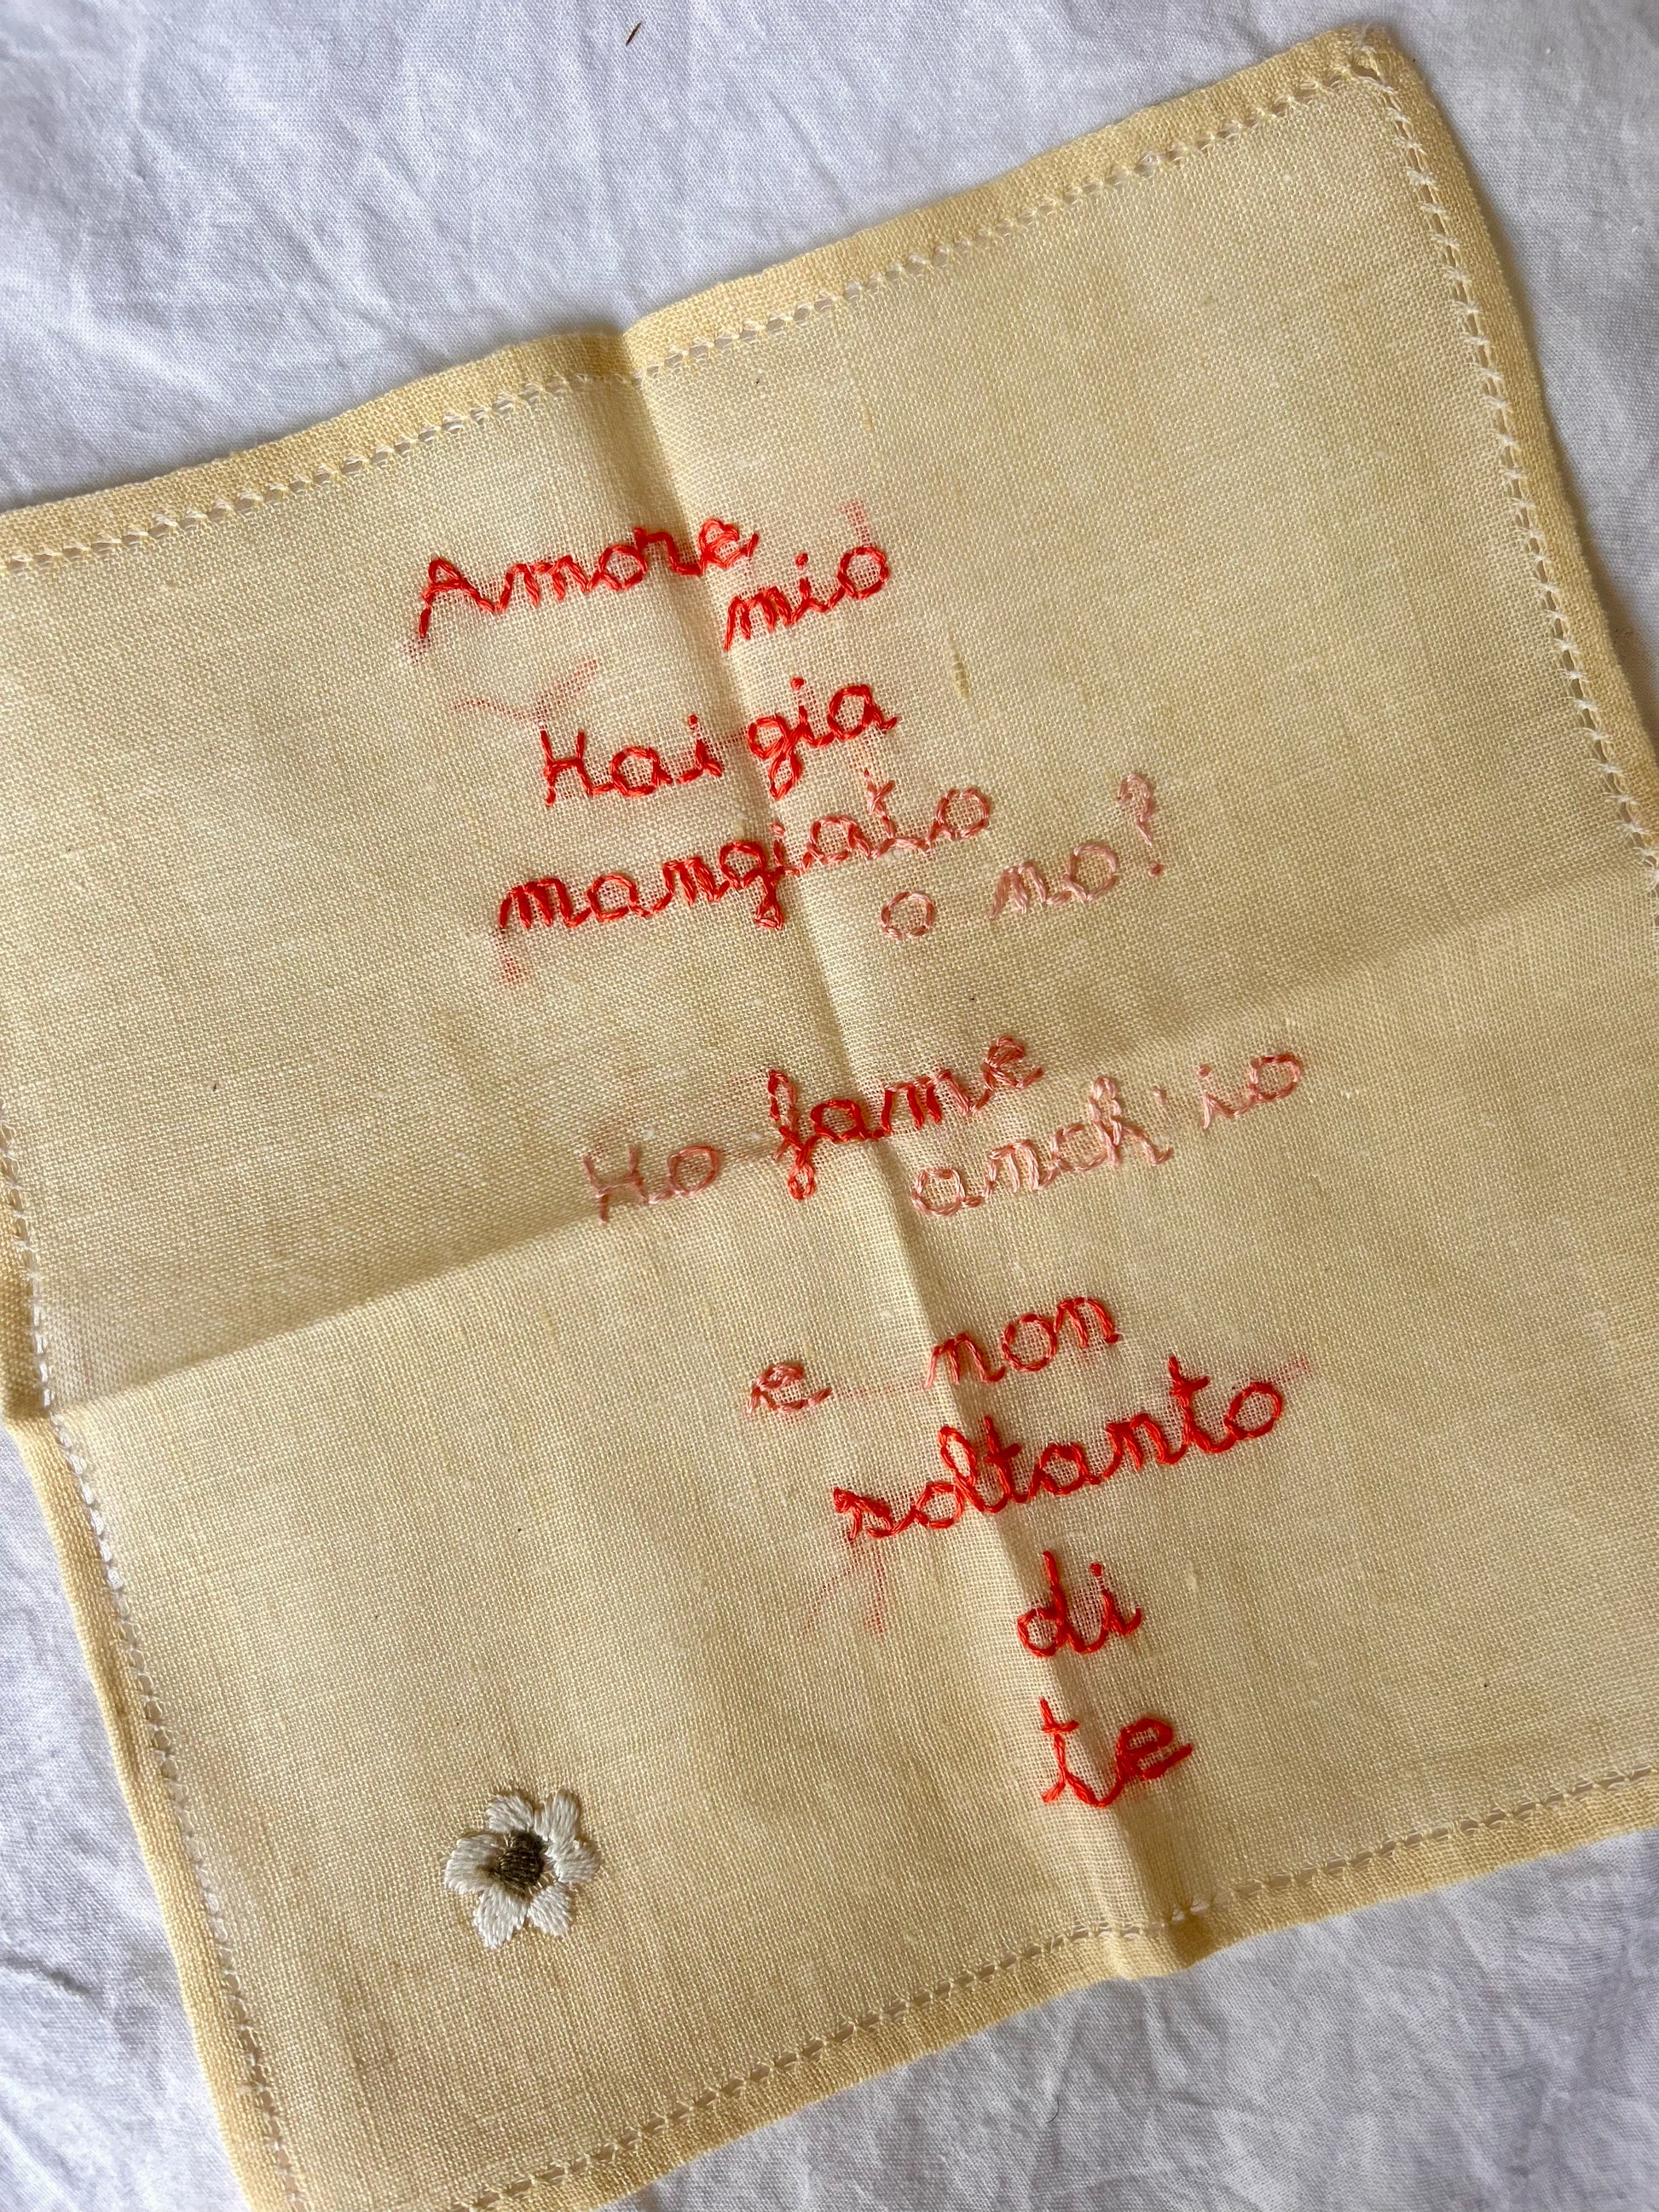 Amore
mio
Hai gia
mangiato
o no?
Ho fame
anch'io
e non
soltanto
di
te